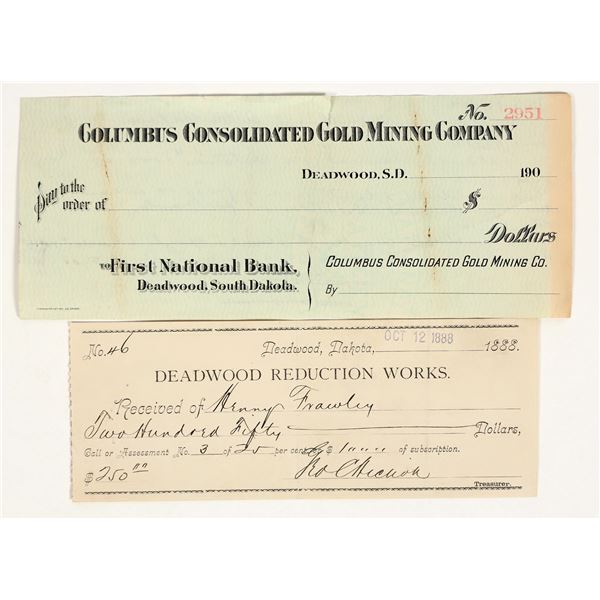 No. 2951
COLUMBUS CONSOLIDATED GOLD MINING COMPANY
DEADWOOD, S.D. 190
Pay to the order of $
Dollars
TO First National Bank,
Deadwood, South Dakota.
COLUMBUS CONSOLIDATED GOLD MINING CO.
By
No. 46 Deadwood, Dakota, OCT 12 1888 1888.
DEADWOOD REDUCTION WORKS.
Received of Henry Frawley
Two Hundred Fifty Dollars,
Call or Assessment No. 3 of 25 per cent of subscription.
$250.00
Treasurer.